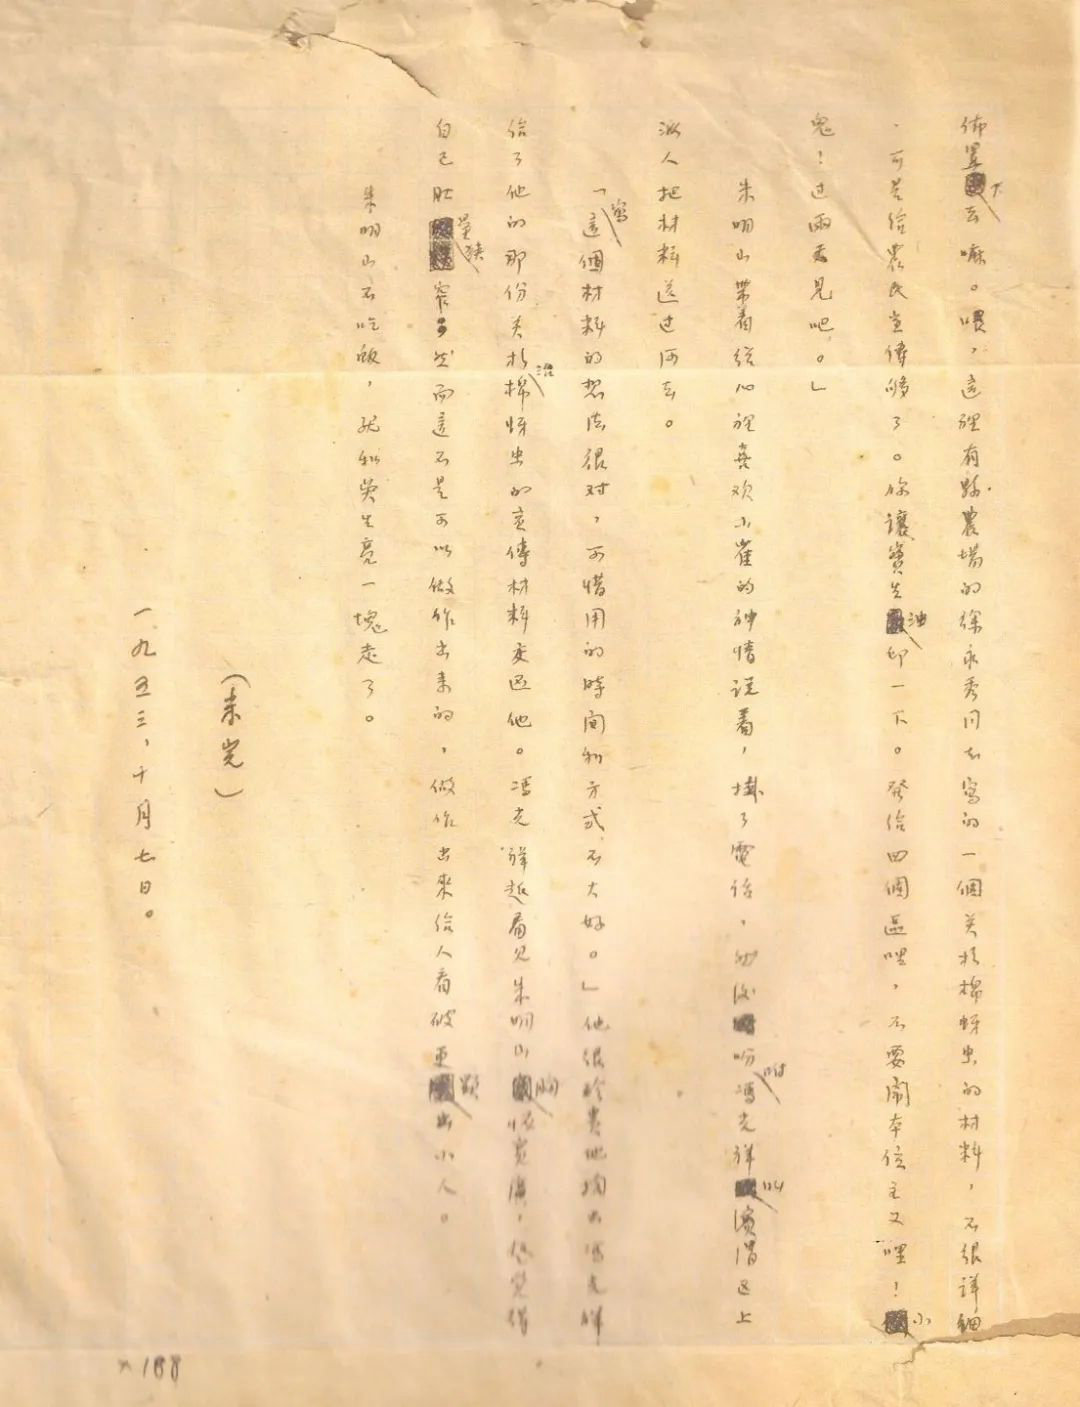 佈置下去嘛。喂,這裡有縣農場的徐永秀同志寫的一個关於棉蚜虫的材料,不很詳細
,可是給農民宣傳够了。你讓寶生油印一下。發給四個區哩,不要鬧本位主义哩!小
鬼!过兩天見吧。」
朱明山帶着從心裡喜欢小崔的神情説着,掛了電話,然後吩咐馮光祥叫濱渭区上
派人把材料送过河去。
「寫這個材料的想法很对,可惜用的時间和方式不大好。」他很珍贵地掏出馮光祥
給了他的那份关於治棉蚜虫的宣傳材料交還他。馮光祥越看見朱明山胸怀寬廣,越覺得
自己肚量狹窄。然而這不是可以做作出来的,做作出來給人看破更顯出小人。
朱明山不吃飯,就和吳生亮一塊走了。
(未完)
一九五三,十月七日。
188